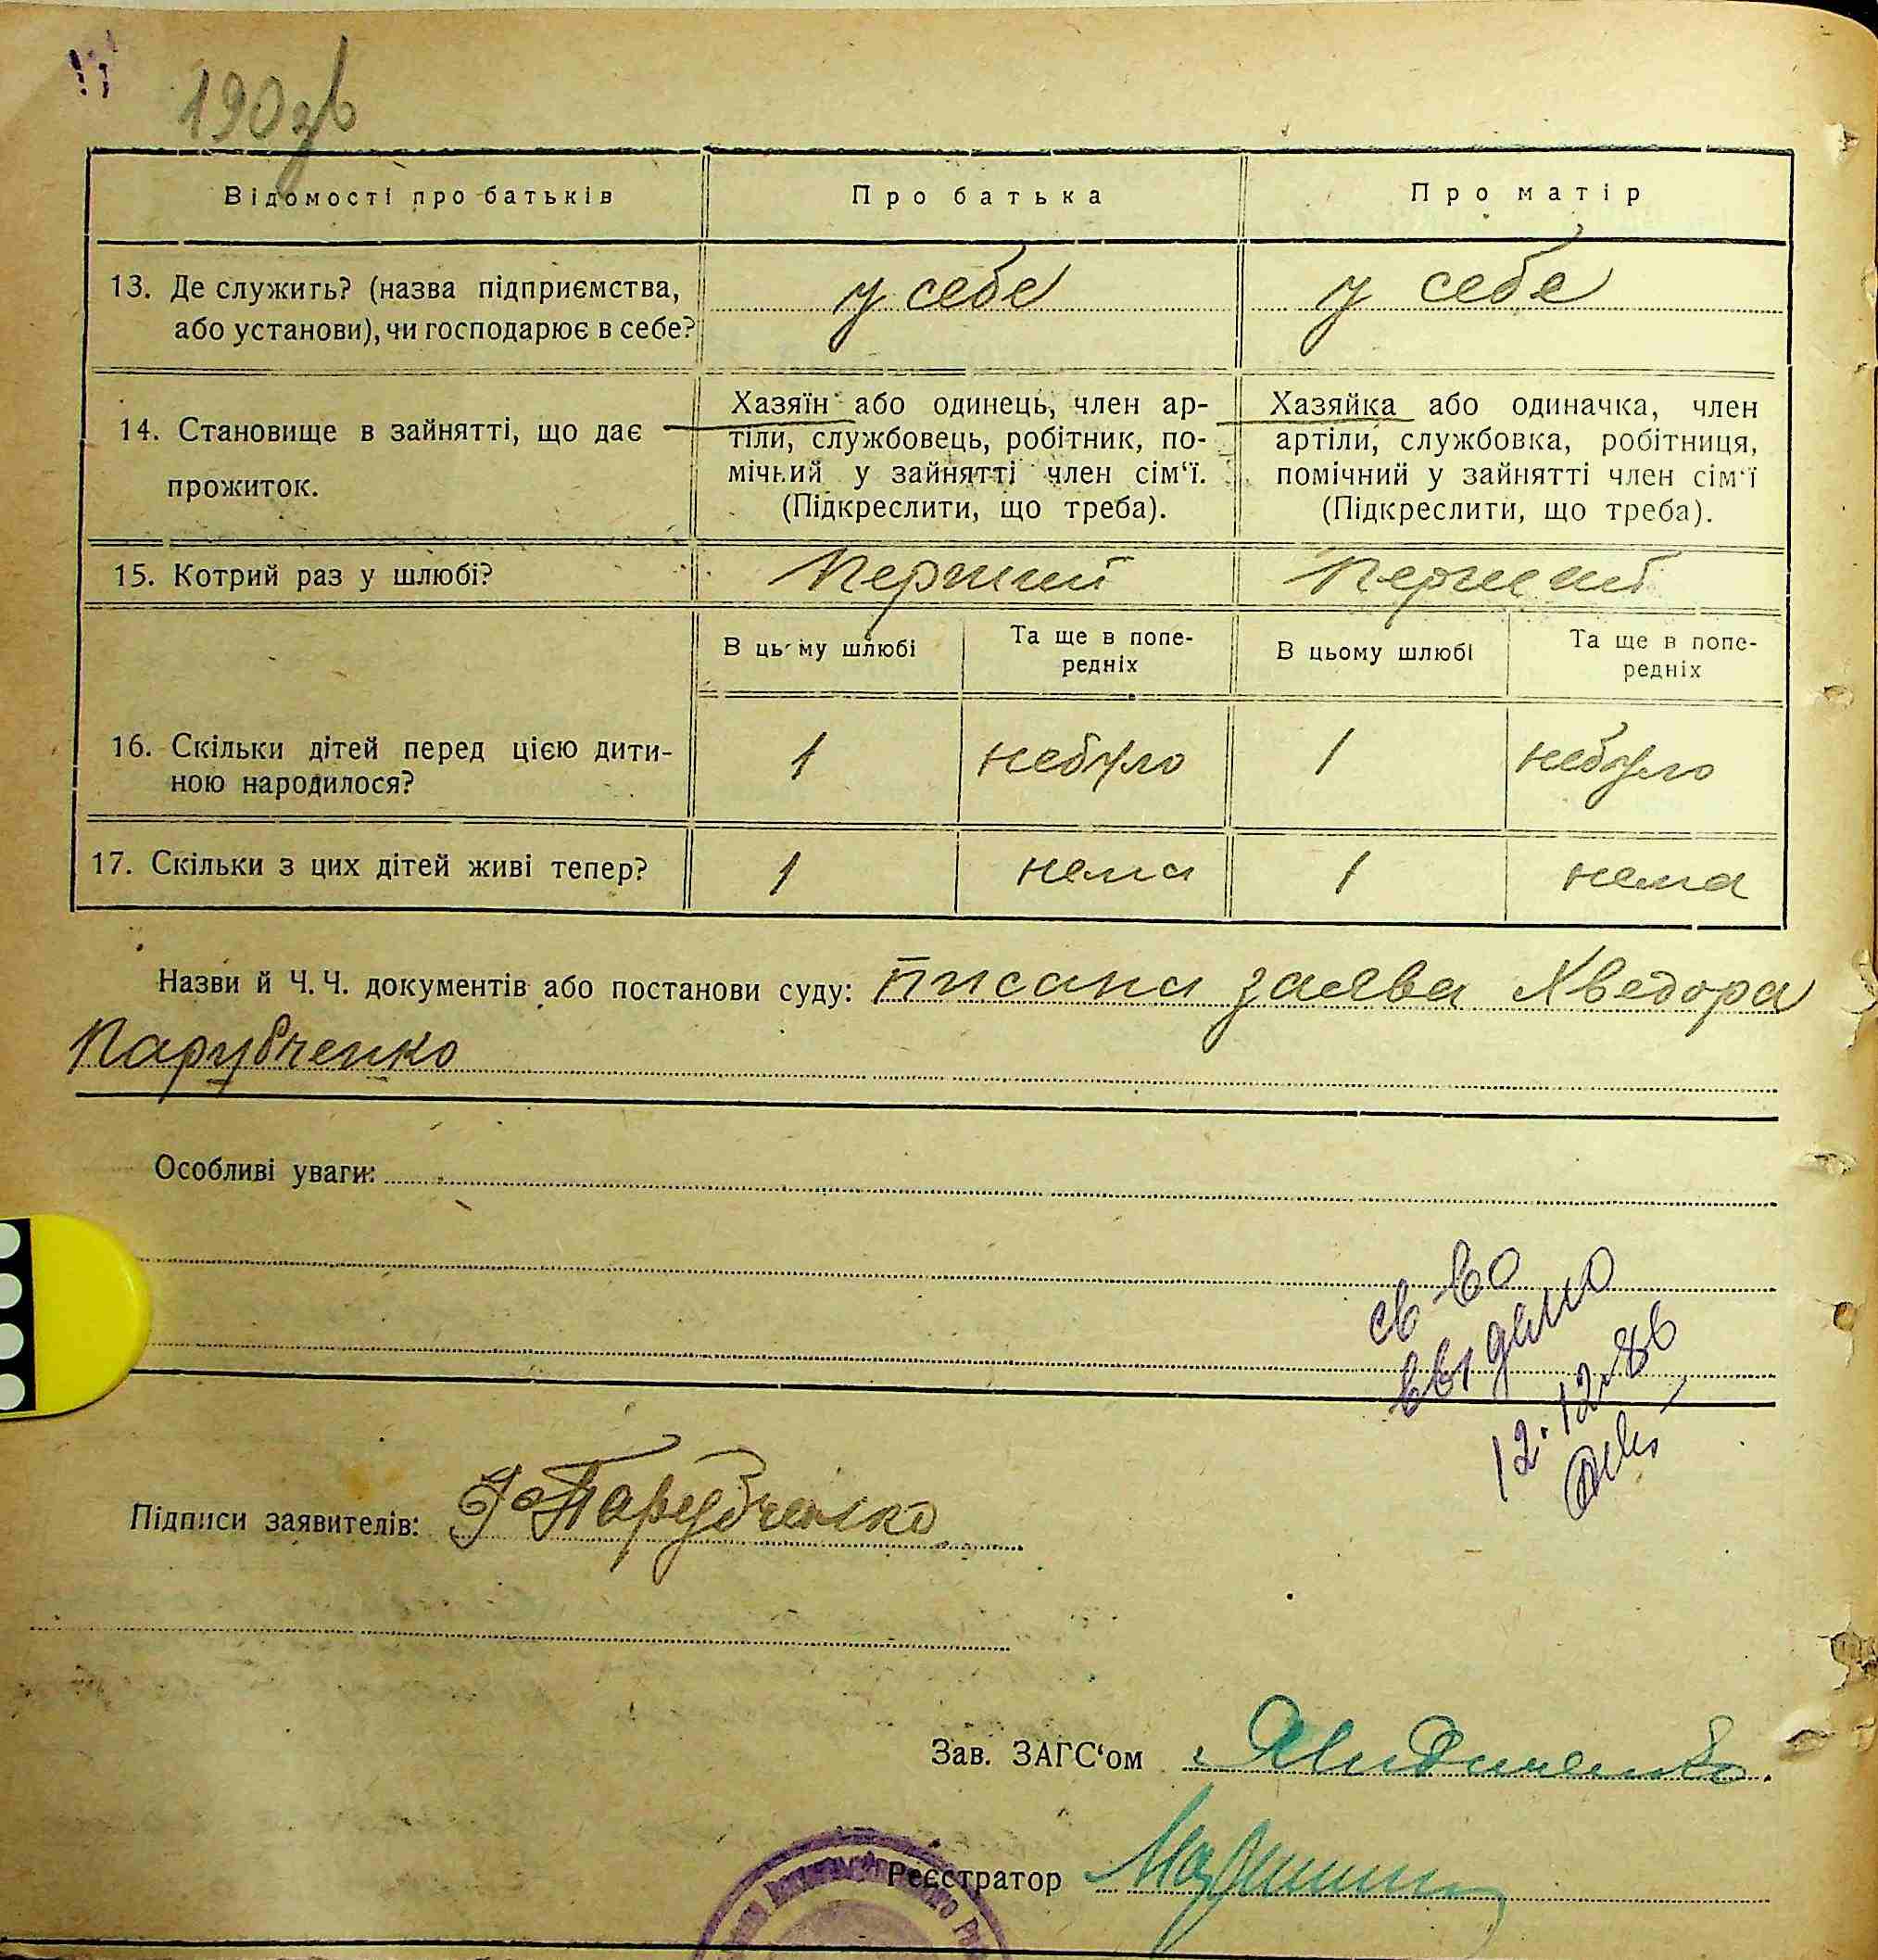 190 зв
Відомості про батьків
Про батька
Про матір
13. Де служить? (назва підприємства,
або установи), чи господарює в себе?
у себе
у себе
14. Становище в зайнятті, що дає
прожиток.
Хазяїн або одинець, член ар-
тіли, службовець, робітник, по-
мічний у зайнятті член сім'ї.
(Підкреслити, що треба).
Хазяйка або одиначка, член
артіли, службовка, робітниця,
помічний у зайнятті член сім'ї
(Підкреслити, що треба).
15. Котрий раз у шлюбі?
Перший
Перший
В цьому шлюбі
Та ще в попе-
редніх
В цьому шлюбі
Та ще в попе-
редніх
16. Скільки дітей перед цією дити-
ною народилося?
1
небуло
1
небуло
17. Скільки з цих дітей живі тепер?
1
нема
1
нема
Назви й Ч. Ч. документів або постанови суду: писана заява Хведора
Парубченко
Особливі уваги:
св-во
выдано
12.12.86
Підписи заявителів: Парубченко
Зав. ЗАГС'ом
Реєстратор